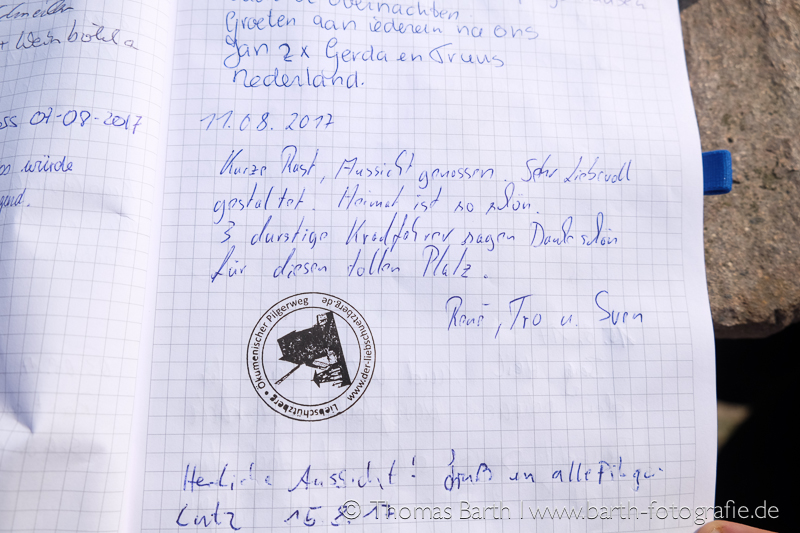 + Weinböhla
07-08-2017
würde
Groeten aan iedereen na ons
Jan z x Gerda en Truus
Nederland.
11.08.2017
Kurze Rast, Aussicht genossen. Sehr liebevoll
gestaltet. Heimat ist so schön.
3 durstige Kradfahrer sagen Dankeschön
für diesen tollen Platz.
René, Tro u. Sven
Ökumenischer Pilgerweg
www.der-liebschuetzberg.de
Liebschützberg
Herrliche Aussicht! Gruß an alle Pilger
Lutz 15.8.17
© Thomas Barth | www.barth-fotografie.de